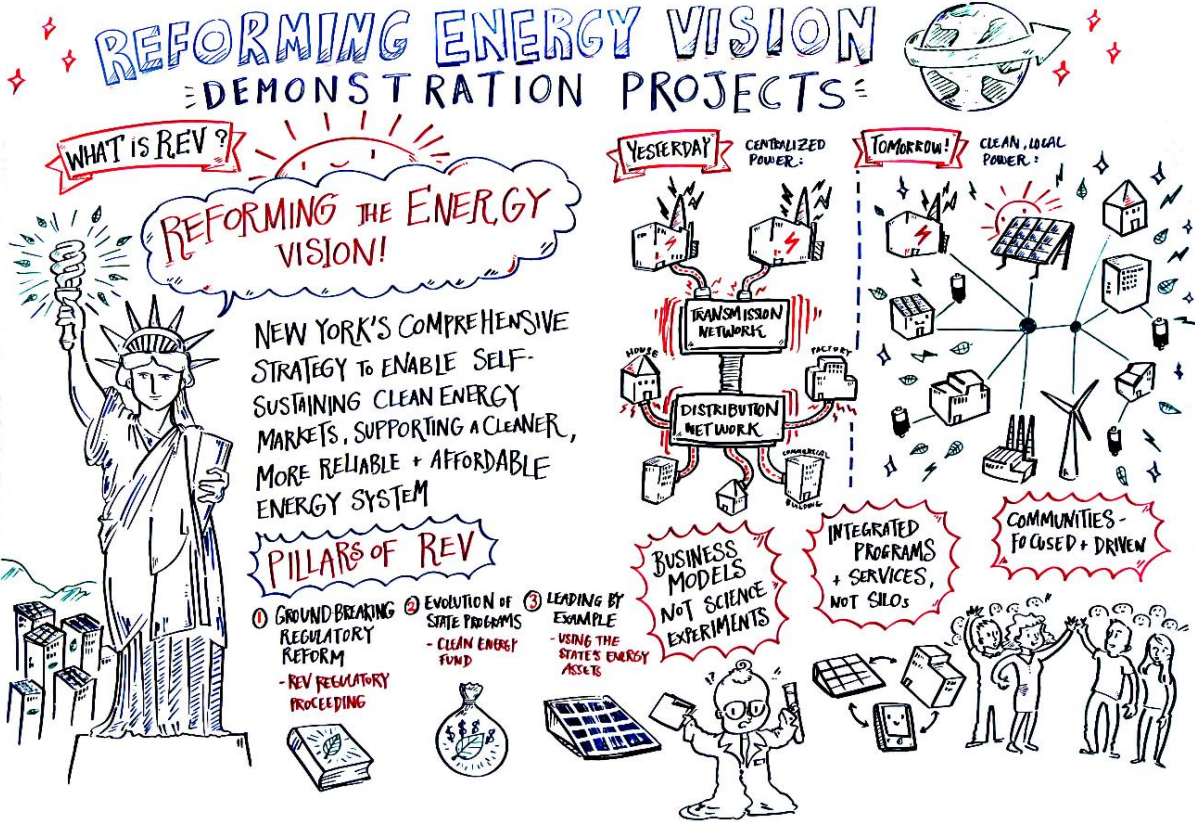 REFORMING ENERGY VISION
DEMONSTRATION PROJECTS
WHAT IS REV?
REFORMING THE ENERGY
VISION!
NEW YORK'S COMPREHENSIVE
STRATEGY TO ENABLE SELF-
SUSTAINING CLEAN ENERGY
MARKETS, SUPPORTING A CLEANER,
MORE RELIABLE + AFFORDABLE
ENERGY SYSTEM
PILLARS OF REV
1 GROUND BREAKING
REGULATORY
REFORM
- REV REGULATORY
PROCEEDING
2 EVOLUTION OF
STATE PROGRAMS
- CLEAN ENERGY
FUND
$ $ $
$ $
3 LEADING BY
EXAMPLE
- USING THE
STATE'S ENERGY
ASSETS
YESTERDAY
CENTRALIZED
POWER:
TRANSMISSION
NETWORK
HOUSE
FACTORY
DISTRIBUTION
NETWORK
COMMERCIAL
BUILDING
TOMORROW!
CLEAN, LOCAL
POWER:
BUSINESS
MODELS
NOT SCIENCE
EXPERIMENTS
INTEGRATED
PROGRAMS
+ SERVICES,
NOT SILOS
COMMUNITIES -
FOCUSED + DRIVEN